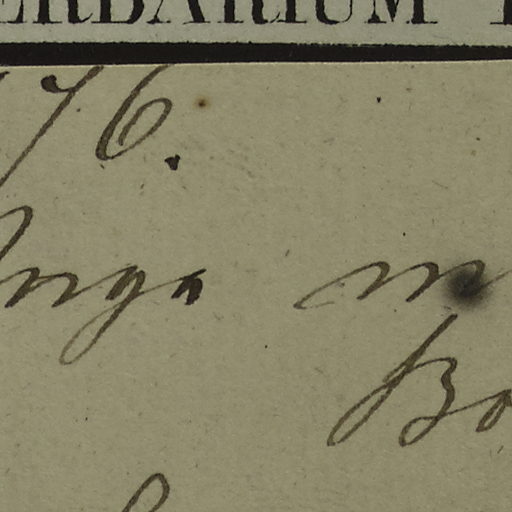 ERBARIUM
76.
onga m
Bo